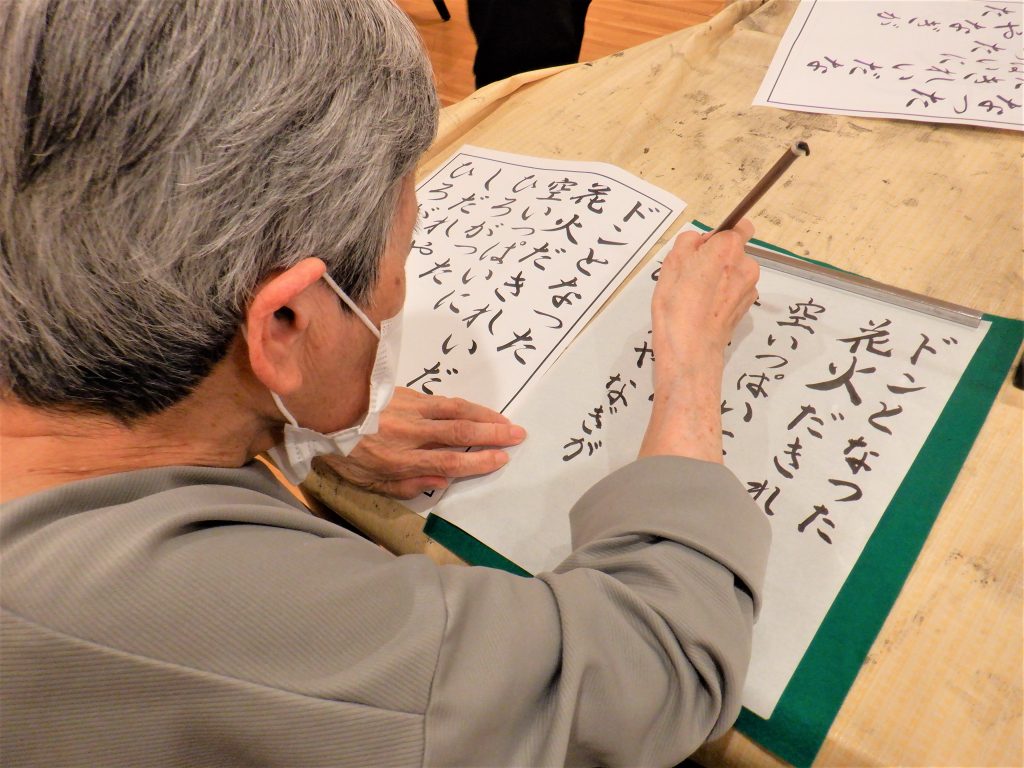 ドンとなった
花火だきれいだ
空いっぱいに
ひろがった
しだれや
ひろが
ドンとなった
花火だきれ
空いっぱい
やなぎが
なった
れいだな
やなぎが